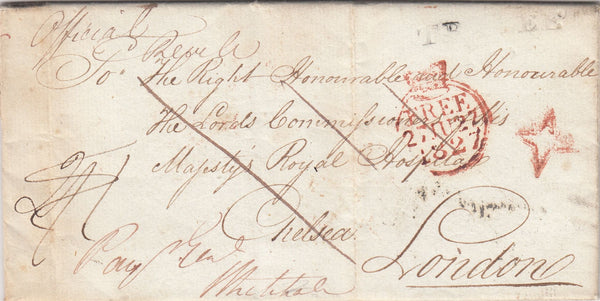 Official
To The Right Honourable and Honourable
The Lords Commissioners of His
Majesty's Royal Hospital
Chelsea
London
Pay Genl
Whitehall
FREE
1827